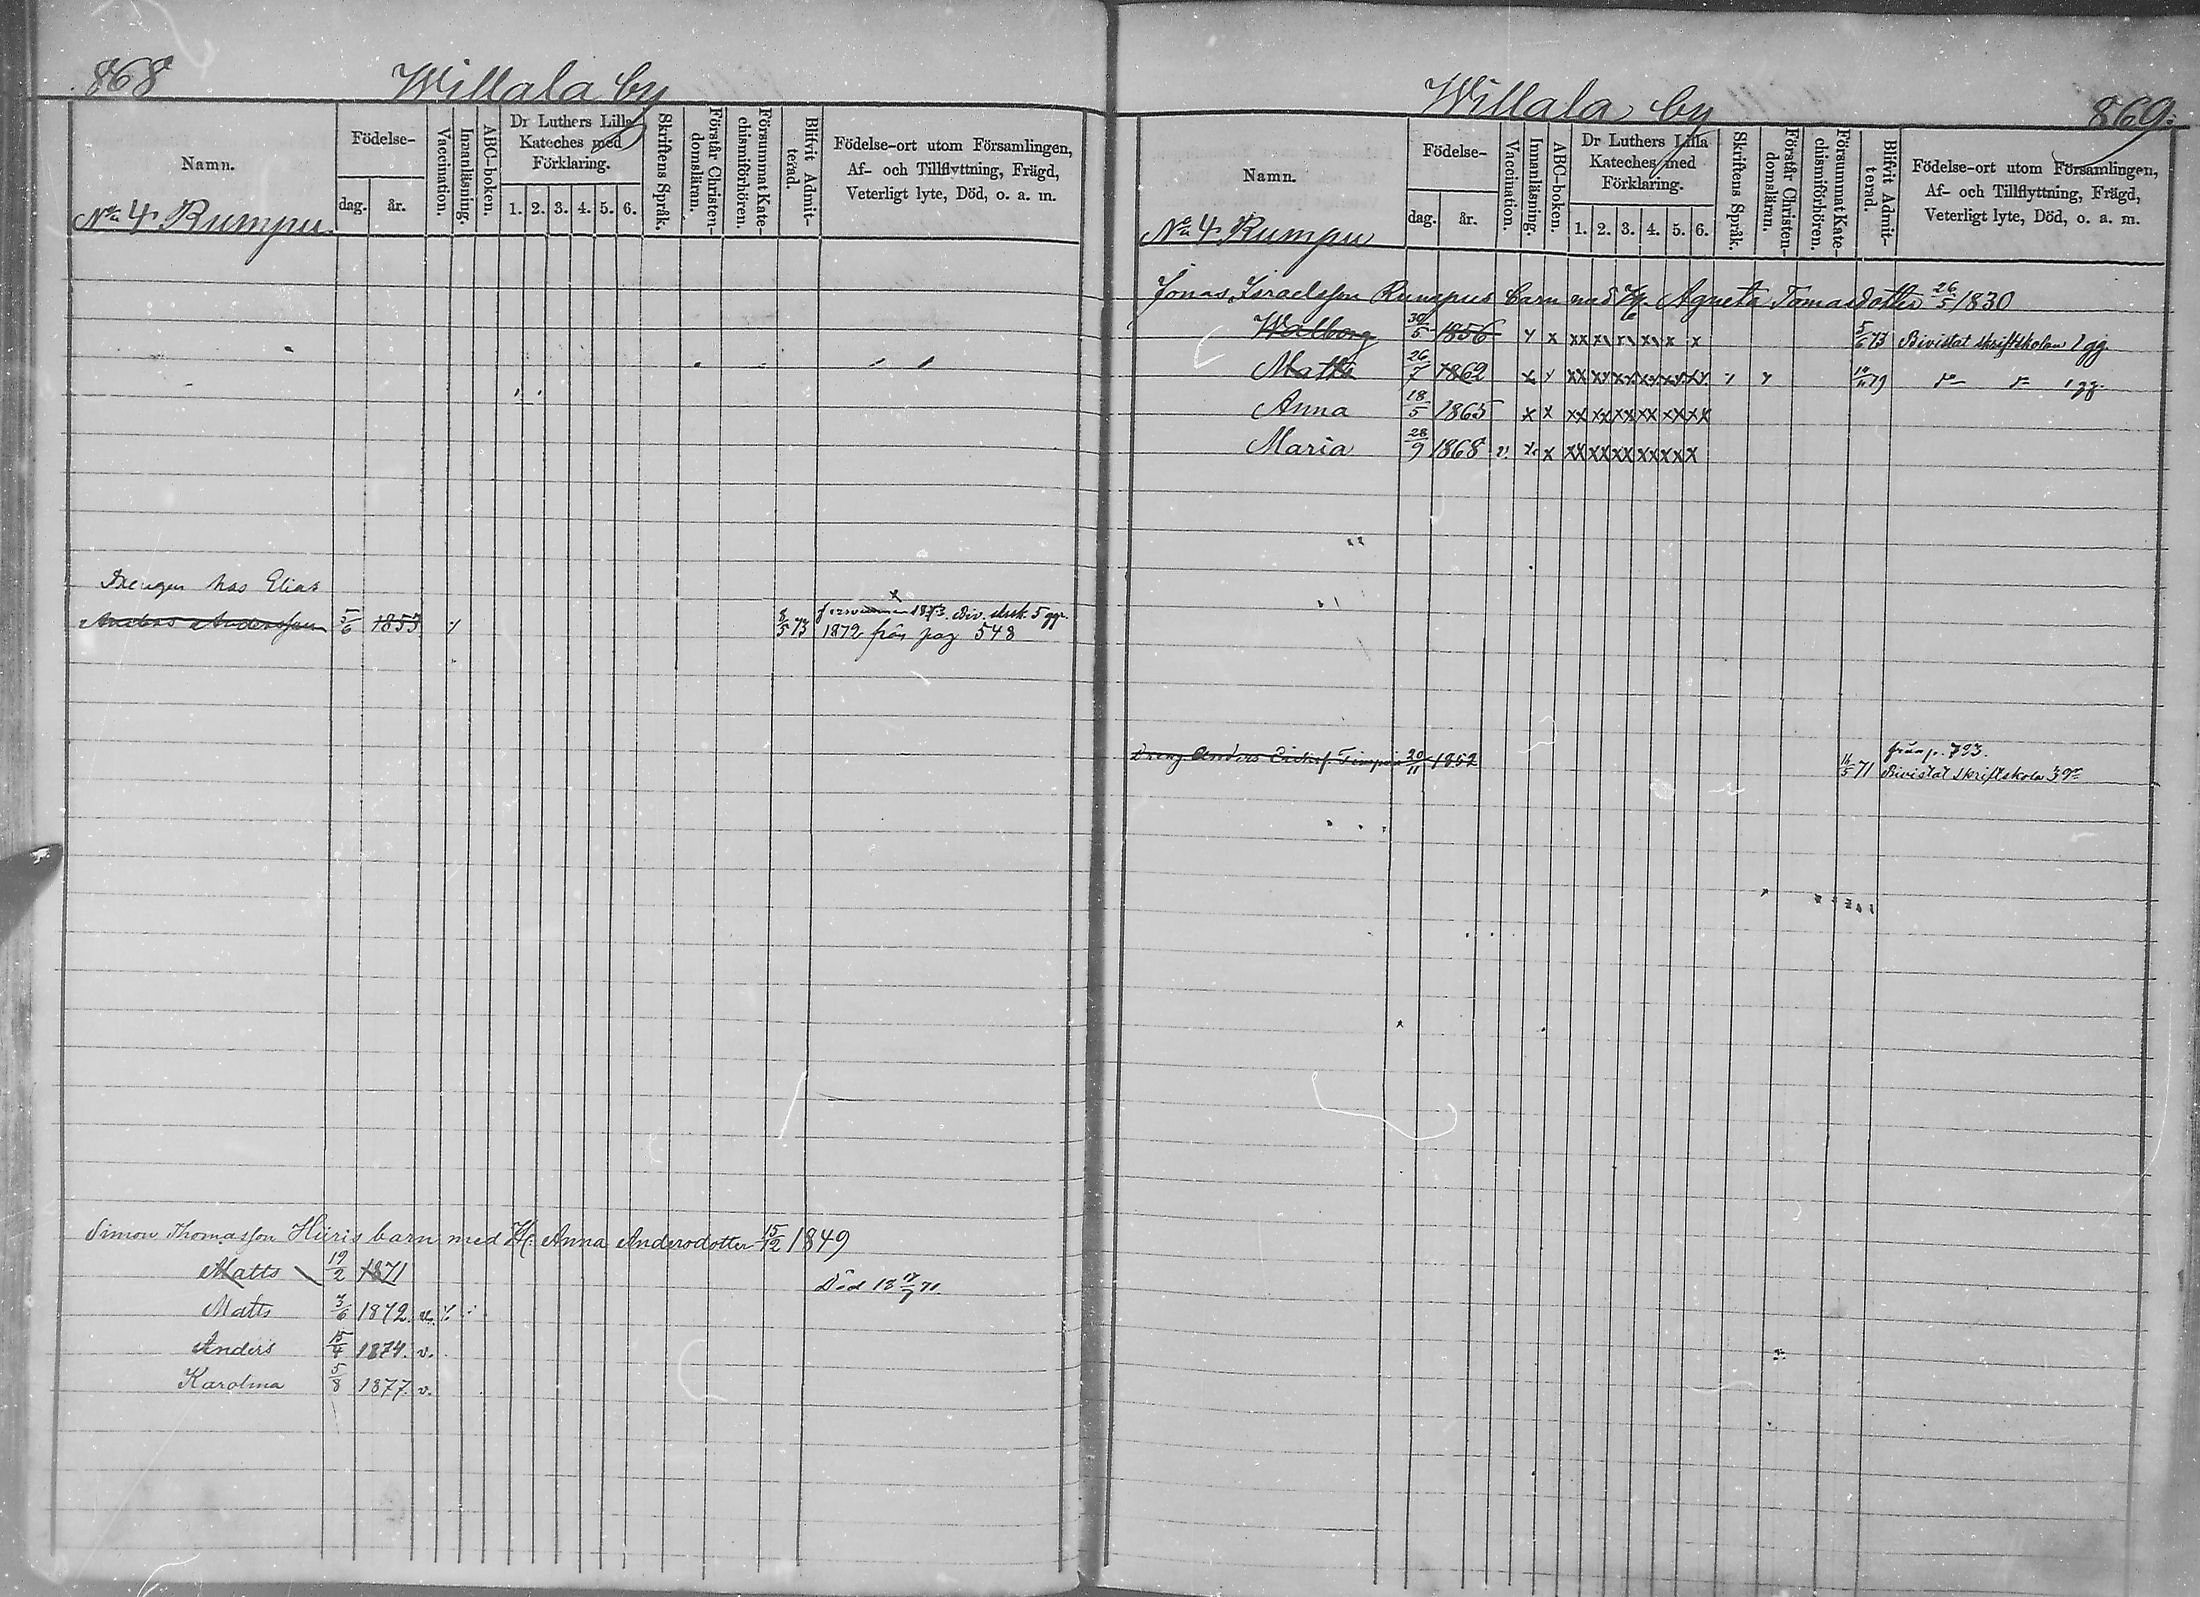 868 Willala by
Namn. Födelse- dag. år. Vaccination. Innanläsning. ABC-boken. Dr Luthers Lilla Kateches med Förklaring. 1. 2. 3. 4. 5. 6. Skriftens Språk. Förstår Christendomsläran. Försummat Katechismiförhören. Blifvit Admitterad. Födelse-ort utom Församlingen, Af- och Tillflyttning, Frägd, Veterligt lyte, Död, o. a. m.
No 4 Rumpu
Drengen hos Elias
Anders Andersson 5/6 1853 73 1873. 5 ggr
1872 från pag 548
Simon Thomasson Hiiris barn med H. Anna Andersdotter 15/12 1849
Matts 19/2 1871 Död 18 71.
Matts 3/6 1872. v. x
Anders 15/4 1874. v.
Karolina 5/8 1877. v.
Willala by 869.
Namn. Födelse- dag. år. Vaccination. Innanläsning. ABC-boken. Dr Luthers Lilla Kateches med Förklaring. 1. 2. 3. 4. 5. 6. Skriftens Språk. Förstår Christendomsläran. Försummat Katechismiförhören. Blifvit Admitterad. Födelse-ort utom Församlingen, Af- och Tillflyttning, Frägd, Veterligt lyte, Död, o. a. m.
No 4 Rumpu
Jonas Israelsson Rumpus barn med H. Agneta Tomasdotter 26/5 1830
Walborg 30/5 1856 x x xx x x x x x 5/6 73 Bivistat skriftskolan 1 gg
Matts 26/7 1862 x x xx xx xx xx xx xx x x 79 1 gg
Anna 18/5 1865 x x xx xx xx xx xx xx
Maria 28/9 1868 v. x x xx xx xx xx xx x
Dreng Anders 20/11 1852 71 från p. 793.
Bivistat skriftskola 3 gr